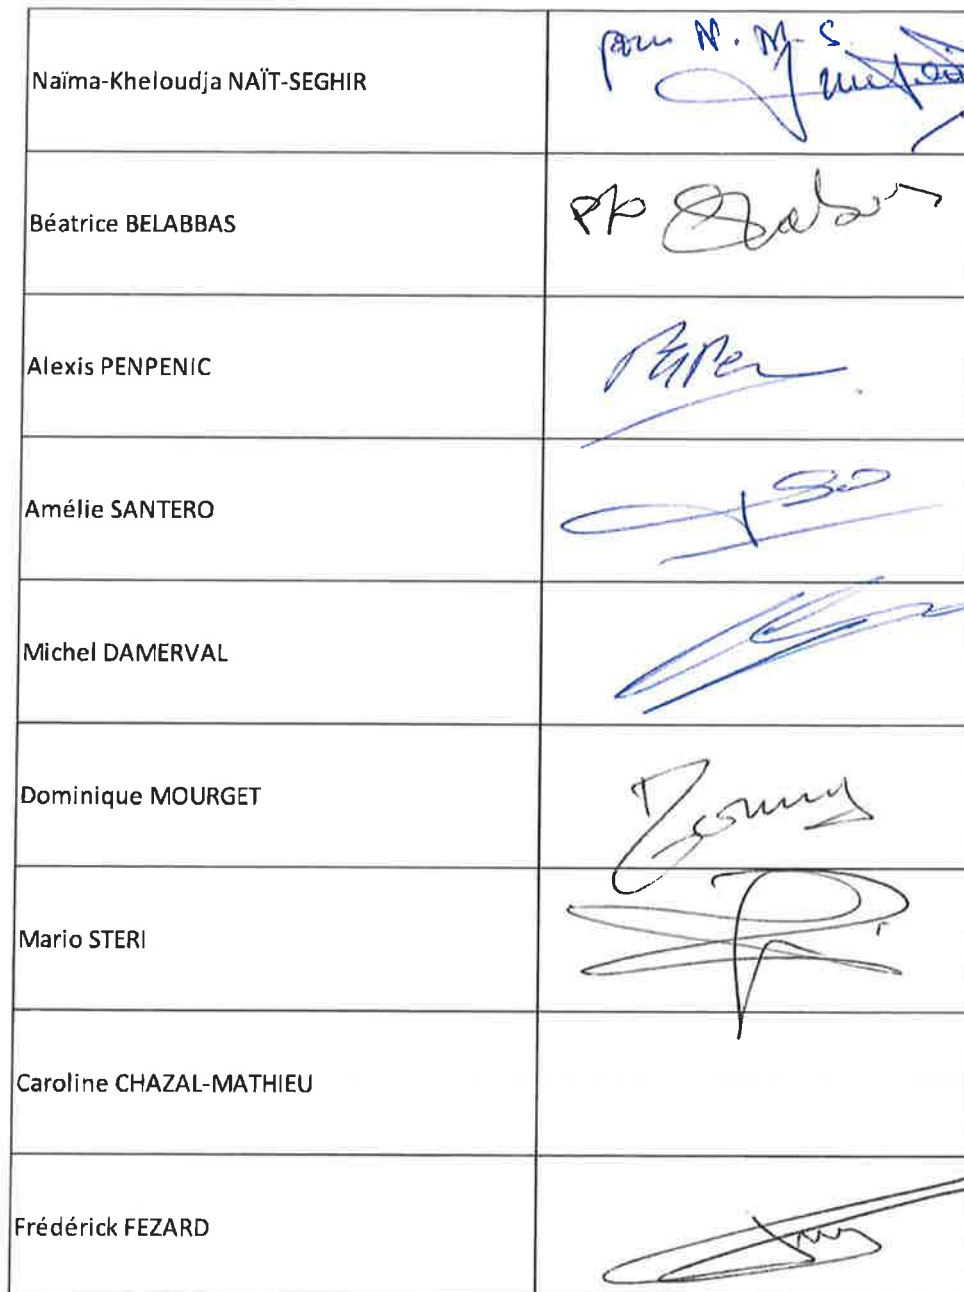 Naïma-Kheloudja NAÏT-SEGHIR
pour N. M. S.
Béatrice BELABBAS
P/o
Alexis PENPENIC
Amélie SANTERO
Michel DAMERVAL
Dominique MOURGET
Mario STERI
Caroline CHAZAL-MATHIEU
Frédérick FEZARD